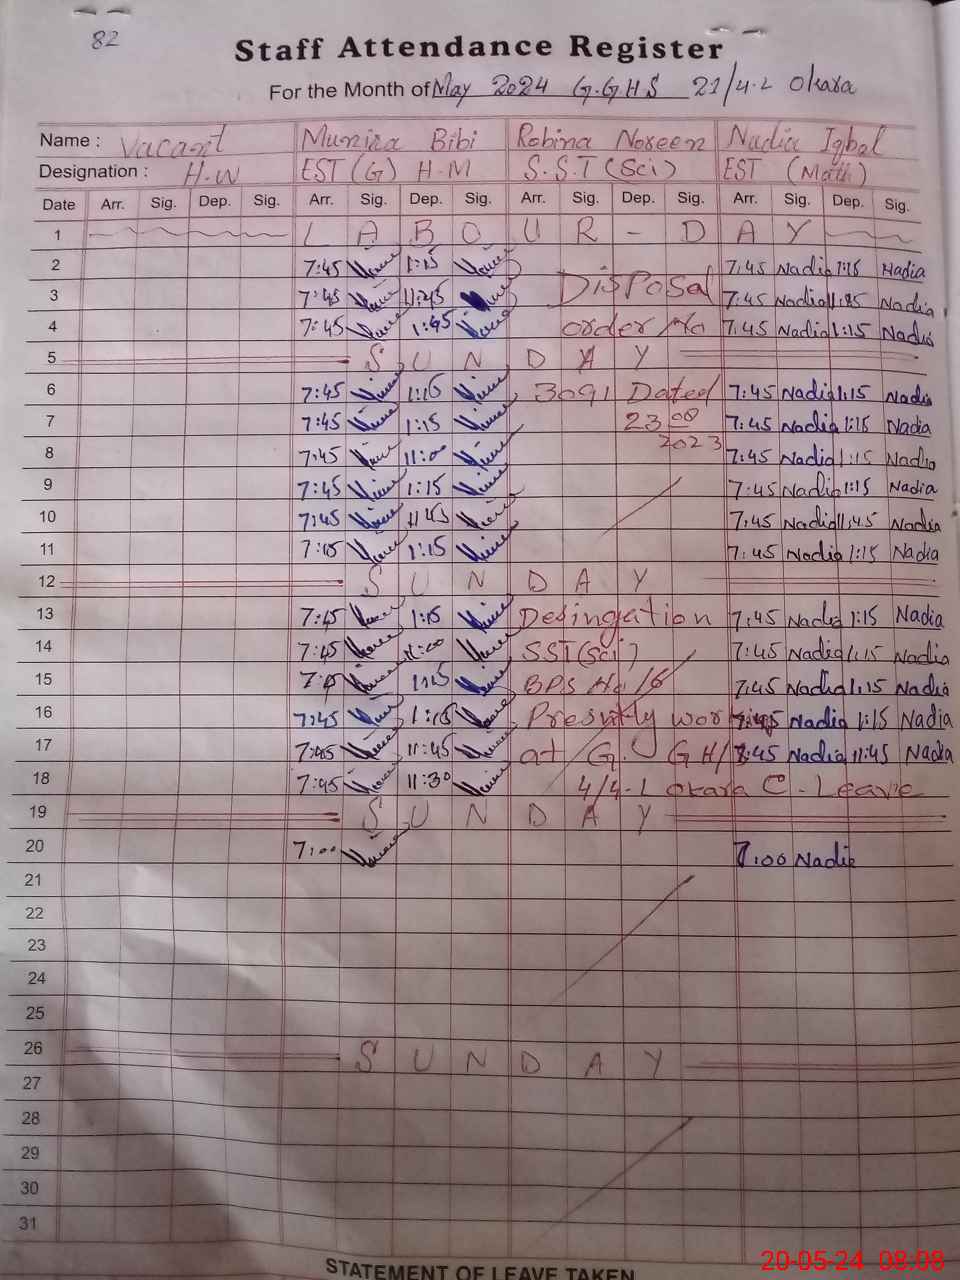 82
Staff Attendance Register
For the Month of May 2024 G.GHS 21/4-L Okara
Name : Vacant Munira Bibi Robina Noreen Nadia Iqbal
Designation : H-W EST (G) H-M S.S.T (Sci) EST (Math)
Date Arr. Sig. Dep. Sig. Arr. Sig. Dep. Sig. Arr. Sig. Dep. Sig. Arr. Sig. Dep. Sig.
1 LABOUR - DAY
2 7:45 1:15 7:45 Nadia 1:15 Nadia
3 7:45 11:45 Disposal 7:45 Nadia Nadia
4 7:45 1:45 order No 7:45 Nadia 1:15 Nadia
5 SUNDAY
6 7:45 1:15 3091 Dated 7:45 Nadia 1:15 Nadia
7 7:45 1:15 23 08 7:45 Nadia 1:15 Nadia
8 7:45 11:00 2023 7:45 Nadia 1:15 Nadia
9 7:45 1:15 7:45 Nadia 1:15 Nadia
10 7:45 11:45 7:45 Nadia 11:45 Nadia
11 7:15 1:15 7:45 Nadia 1:15 Nadia
12 SUNDAY
13 7:45 1:15 Desingation 7:45 Nadia 1:15 Nadia
14 7:45 11:00 SST(Sci) 7:45 Nadia 1:15 Nadia
15 1:15 BPS No 16 7:45 Nadia 1:15 Nadia
16 7:45 1:15 Presently working 7:45 Nadia 1:15 Nadia
17 7:45 11:45 at G. GH/S 7:45 Nadia 11:45 Nadia
18 7:45 11:30 4/4-L Okara C-Leave
19 SUNDAY
20 7:00 7:00 Nadia
21
22
23
24
25
26 SUNDAY
27
28
29
30
31
STATEMENT OF LEAVE TAKEN
20-05-24 08:08